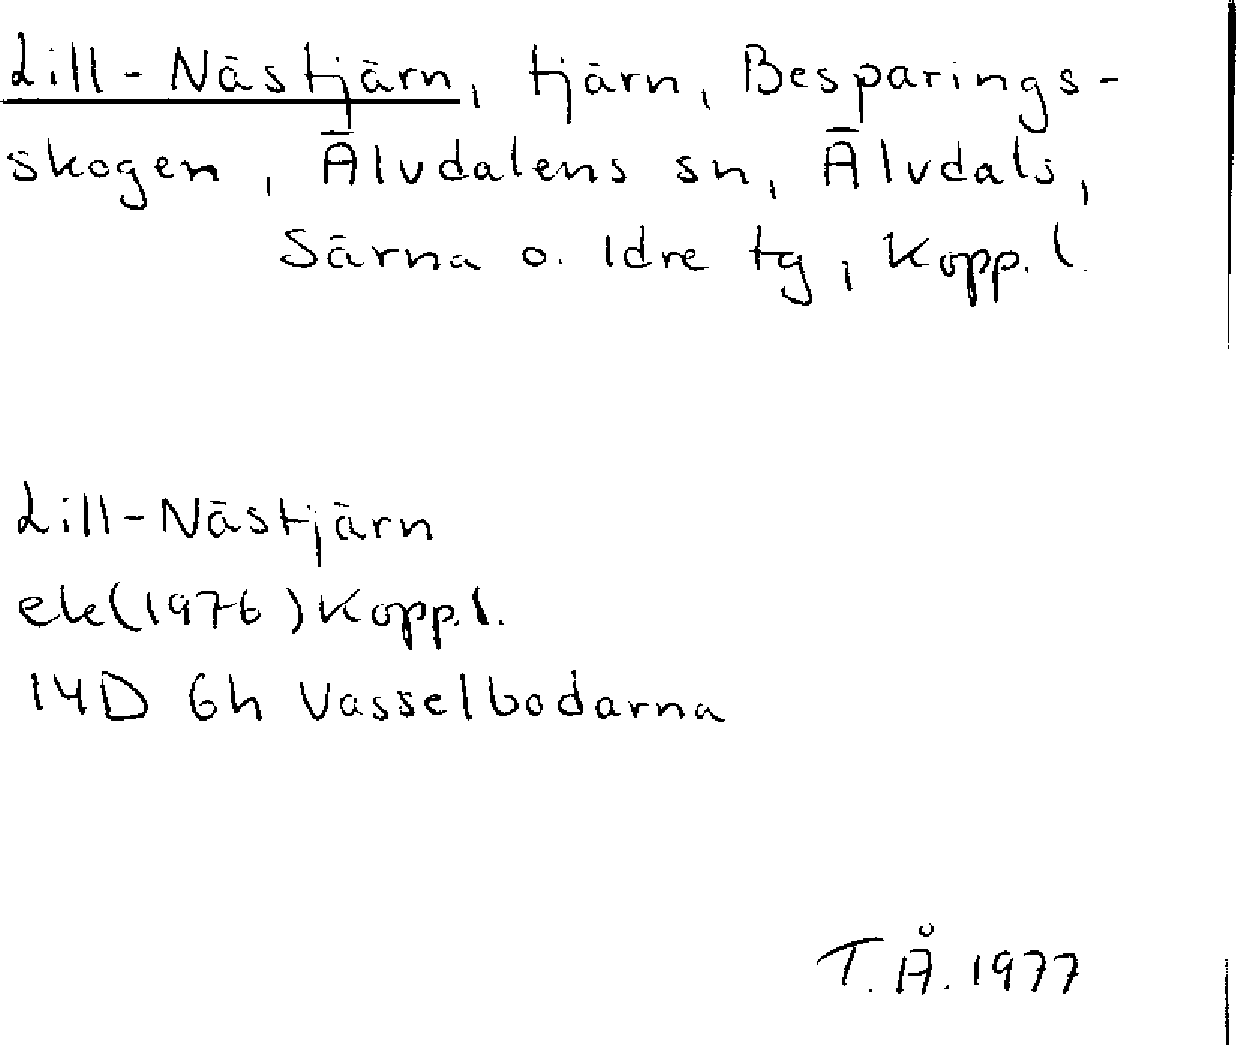 Lill-Nästjärn, tjärn, Besparings-
skogen, Älvdalens sn, Älvdals,
Särna o. Idre tg, Kopp. l.
Lill-Nästjärn
ek(1976) Kopp.l.
14D 6h Vasselbodarna
T.Å. 1977